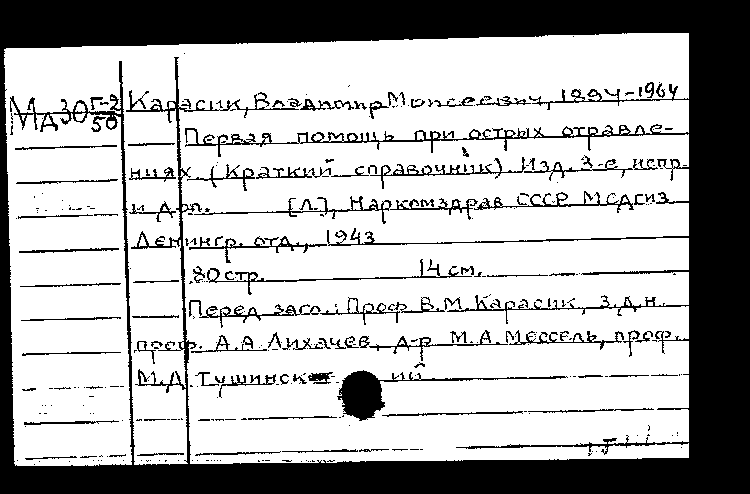 Мд30 Г-2/50
Карасик, Владимир Моисеевич, 1894-1964
Первая помощь при острых отравле-
ниях. (Краткий справочник). Изд. 3-е, испр.
и доп. [Л.], Наркомздрав СССР Медгиз
Ленингр. отд., 1943
80 стр. 14 см.
Перед загл.: Проф В.М. Карасик, з.д.н.
проф. А.А. Лихачев, д-р М.А. Мессель, проф.
М.Д Тушинский